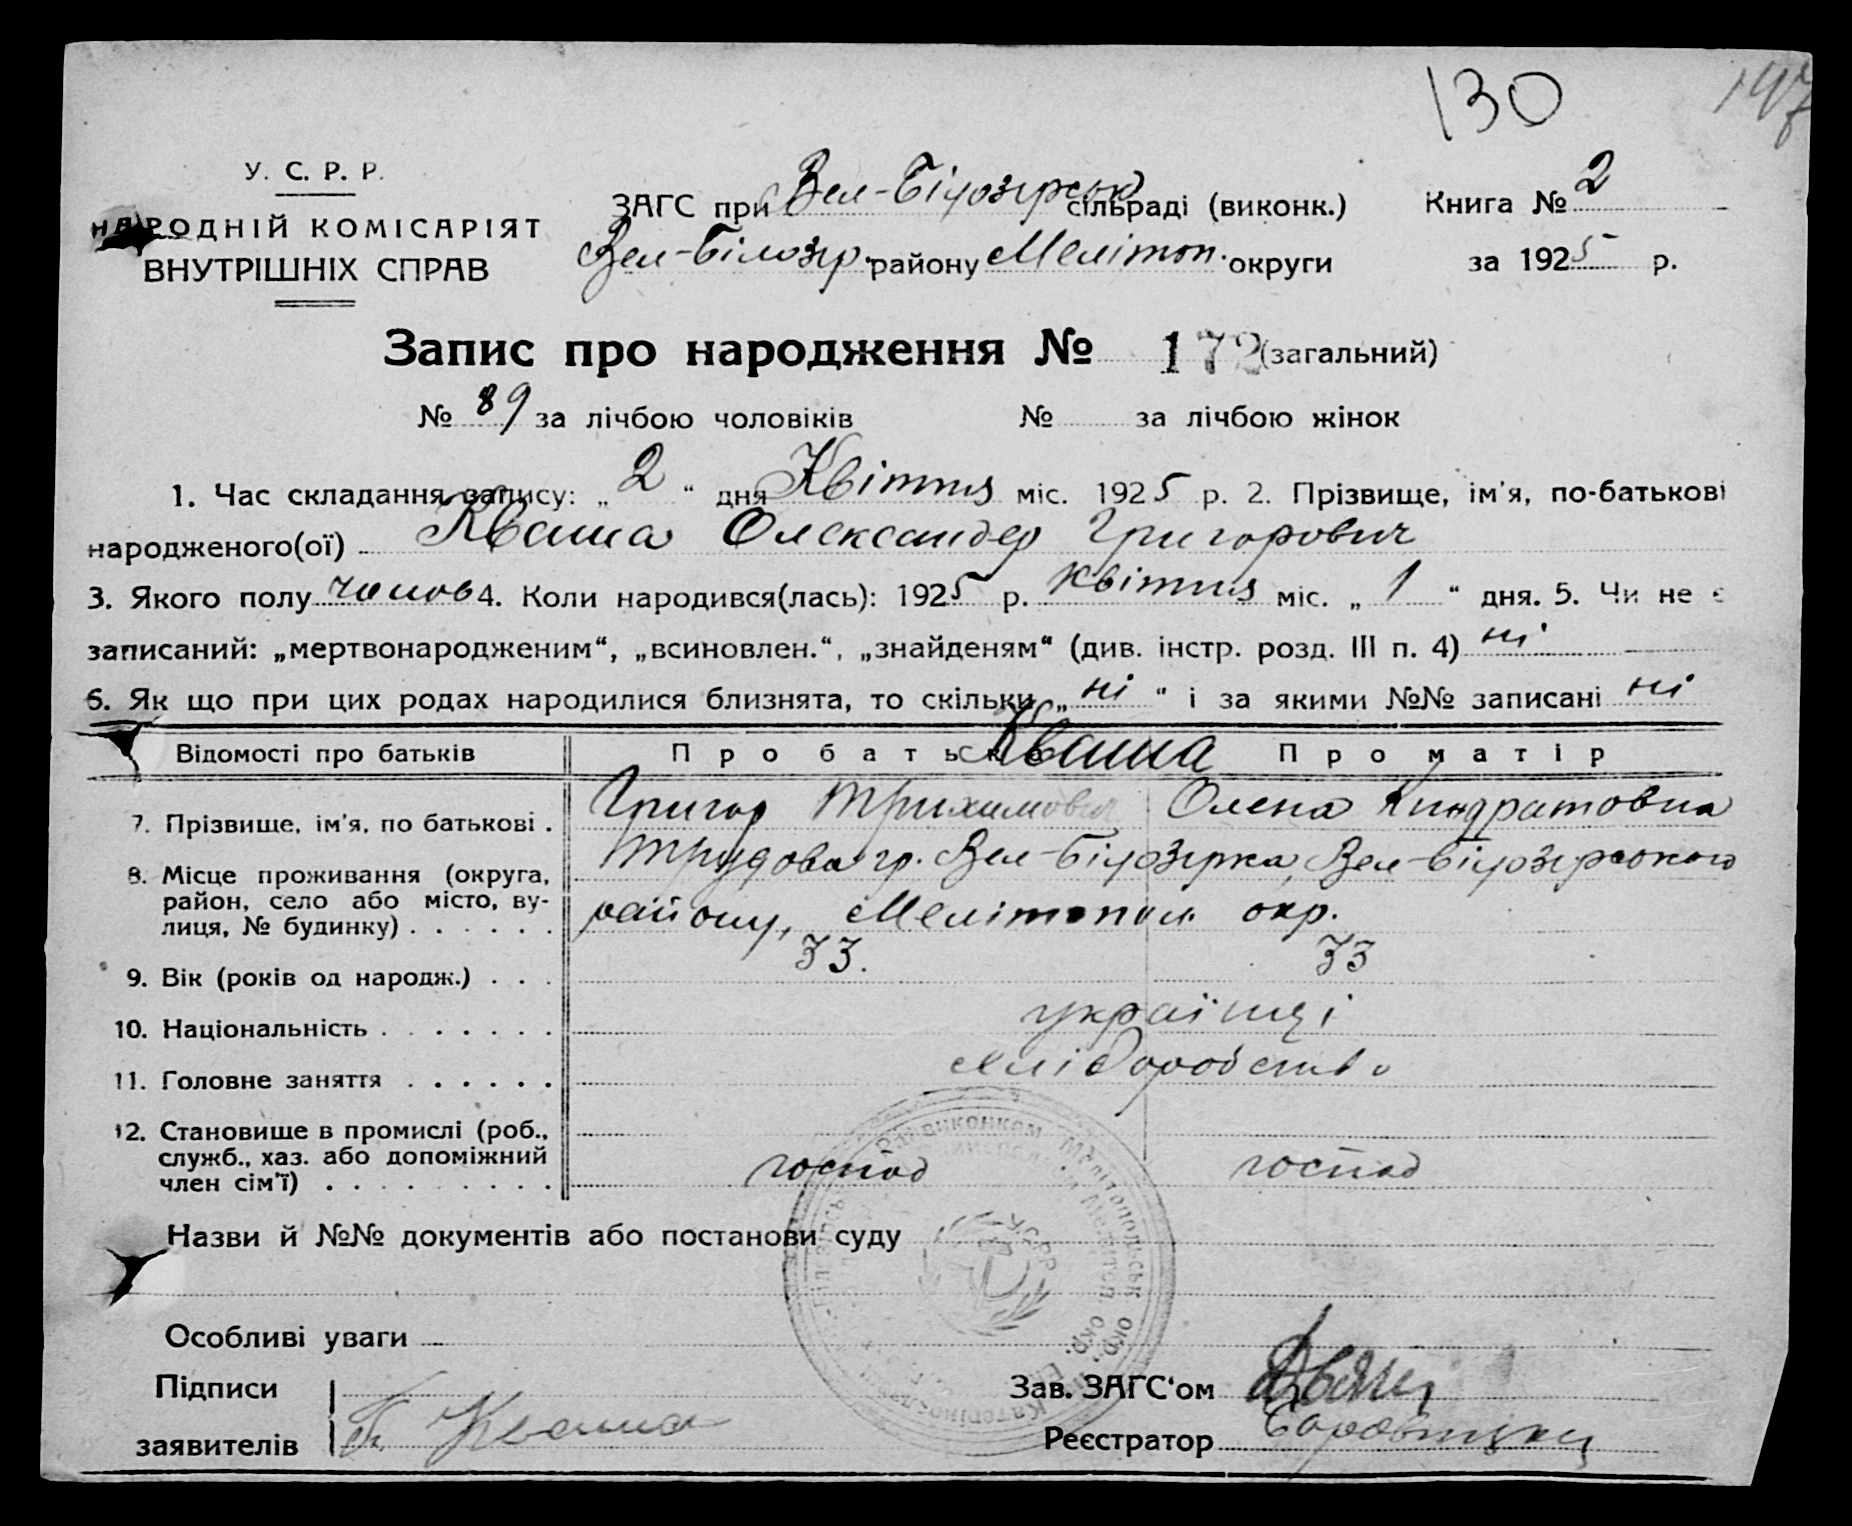 130
197
У. С. Р. Р.
НАРОДНІЙ КОМІСАРІЯТ
ВНУТРІШНІХ СПРАВ
ЗАГС при Вел-Білозірськ сільраді (виконк.) Книга № 2
Вел-Білозір. району Мелітоп. округи за 1925 р.
Запис про народження № 172 (загальний)
№ 89 за лічбою чоловіків № за лічбою жінок
1. Час складання запису: „ 2 “ дня Квітня міс. 1925 р. 2. Прізвище, ім'я, по-батькові
народженого(ої) Кваша Олександер Григорович
3. Якого полу чолов 4. Коли народився(лась): 1925 р. квітня міс. „ 1 “ дня. 5. Чи не є
записаний: „мертвонародженим“, „всиновлен.“, „знайденям“ (див. інстр. розд. III п. 4) ні
6. Як що при цих родах народилися близнята, то скільки „ ні “ і за якими №№ записані ні
Відомості про батьків Про батька Кваша Про матір
7. Прізвище, ім'я, по батькові . Григор Трихимович Олена Киндратовна
8. Місце проживання (округа, район, село або місто, вулиця, № будинку) . . . . . . Трудова гр. Вел-Білозірка, Вел-Білозірського
району, Мелітопол. окр.
9. Вік (років од народж.) . . . 33. 33
10. Національність . . . . . . . українці
11. Головне заняття . . . . . . хліборобство
12. Становище в промислі (роб., служб., хаз. або допоміжний член сім'ї) . . . . . . . . . господ господ
Назви й №№ документів або постанови суду
Райвиконком Мелітопольськ окр.
УСРР
Особливі уваги
Підписи
заявителів Г. Кваша
Зав. ЗАГС‘ом
Реєстратор